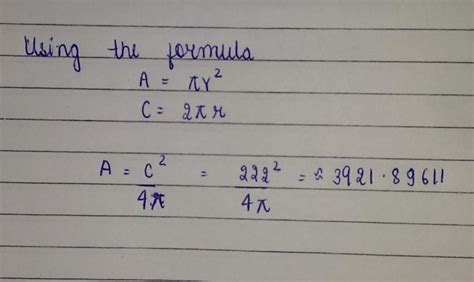 Using the formula
A = πr²
C = 2πr
A = C²/4π = 222²/4π = ≈ 3921.89611